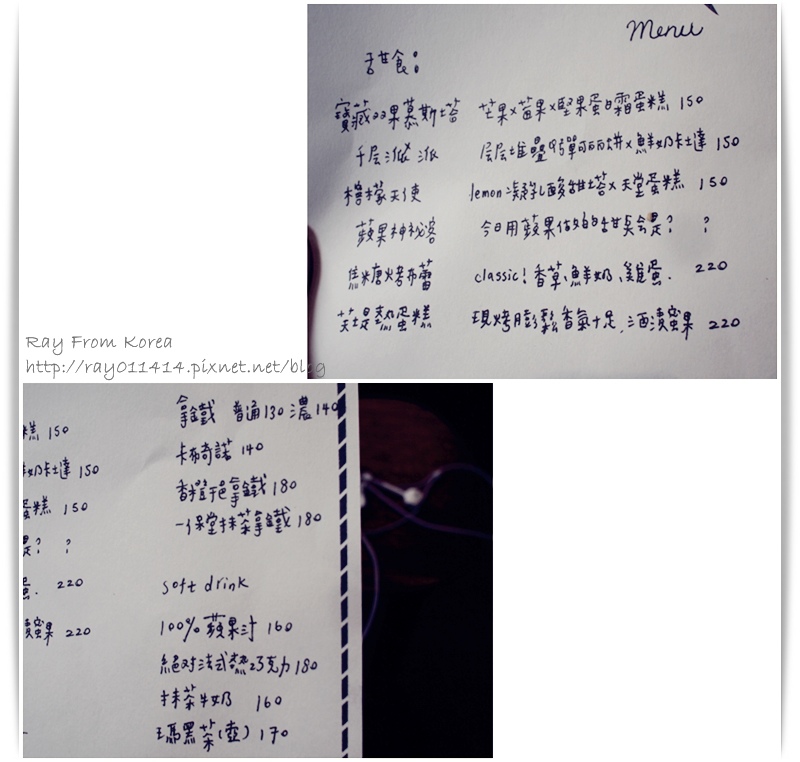 Menu
甜食:
寶藏ㄉㄌ果慕斯塔 芒果x莓果x堅果蛋白霜蛋糕 150
千层派派 层层堆疊ㄉ彈可丽饼x鮮奶卡士達 150
檸檬天使 lemon凝乳酸甜塔x天堂蛋糕 150
蘋果神祕客 今日用蘋果做的甜點會是? ?
焦糖烤布蕾 classic!香草、鮮奶、雞蛋. 220
英式是熱蛋糕 現烤膨鬆香氣十足,酒漬蜜果 220
Ray From Korea
http://ray011414.pixnet.net/blog
糕 150
鮮奶卡士達 150
蛋糕 150
是? ?
蛋. 220
漬蜜果 220
拿鐵 普通130 濃140
卡布奇諾 140
香橙干邑拿鐵 180
一保堂抹茶拿鐵 180
soft drink
100% 蘋果汁 160
絕对法式熱巧克力 180
抹茶牛奶 160
瑪黑茶(壺) 170